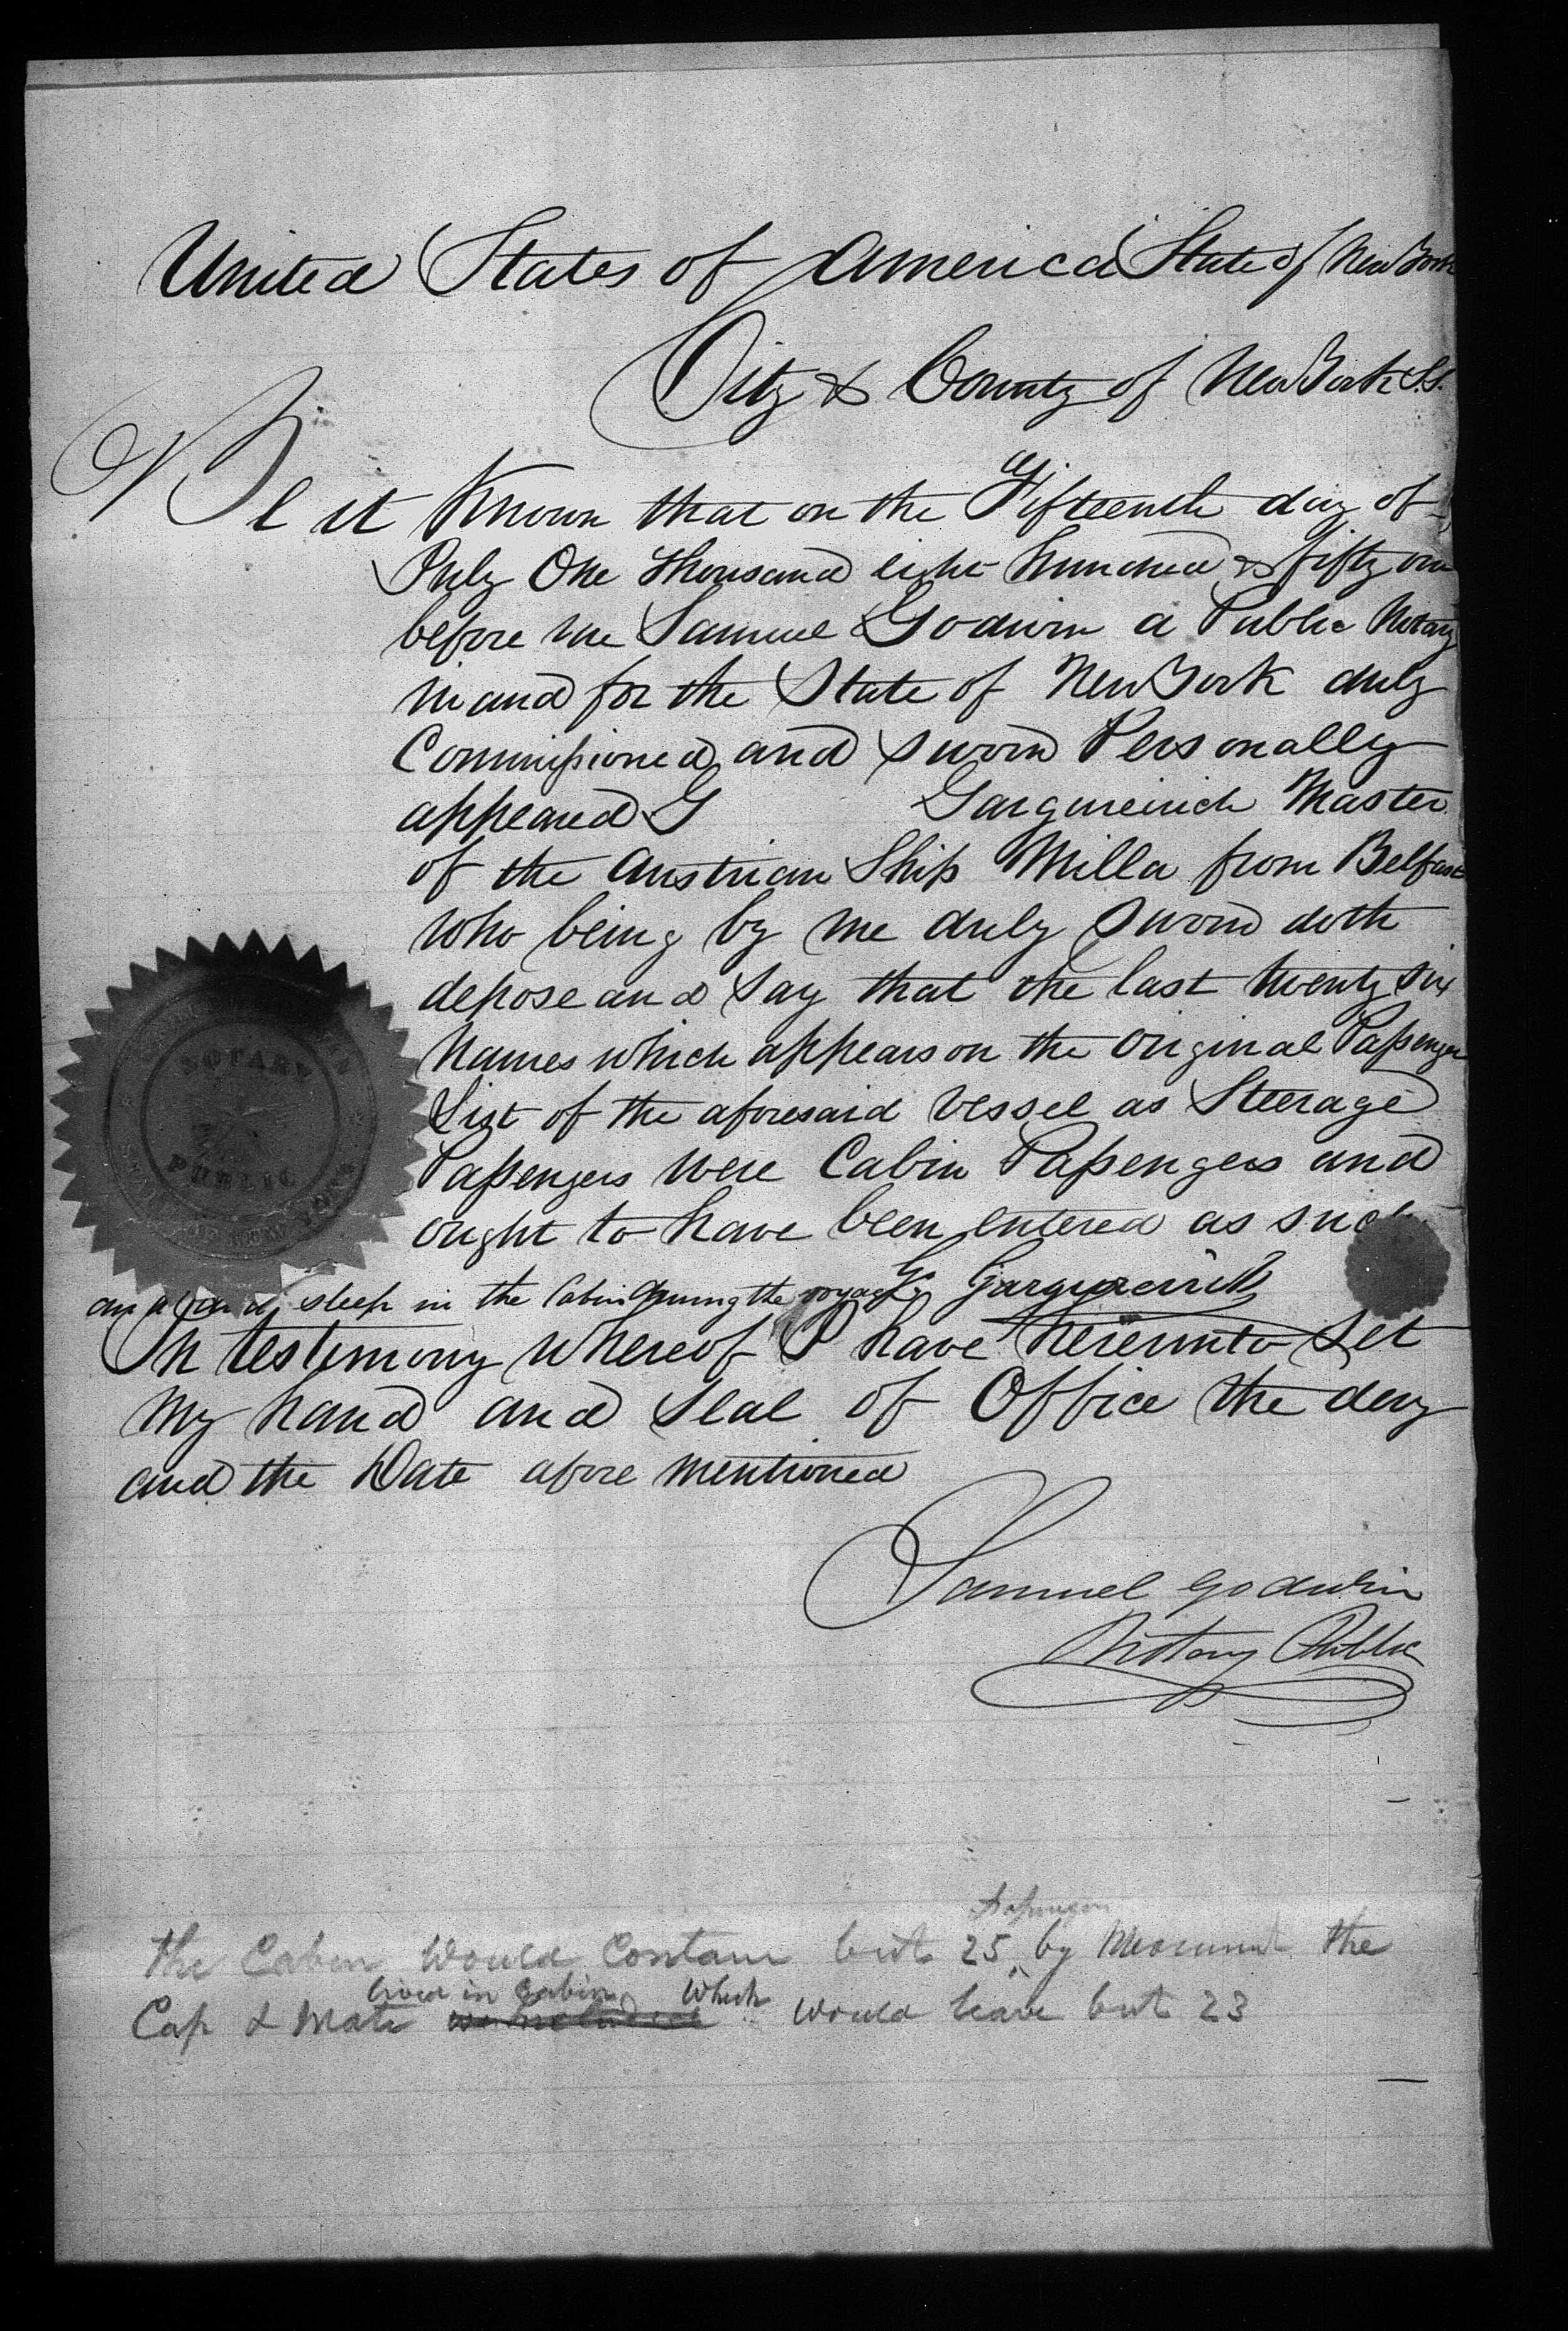 United States of America State of New York
City & County of New York S.S.
Be it Known that on the Fifteenth day of
July One thousand eight hundred & fifty one
before me Samuel Godwin a Public Notary
in and for the State of New York duly
Commissioned and sworn Personally
appeared G Gargureivich Master
of the Austrian Ship Milla from Belfast
who being by me duly sworn doth
depose and say that the last twenty six
Names which appears on the original Passenger
List of the aforesaid vessel as Steerage
Passengers were Cabin Passengers and
ought to have been entered as such
and sleep in the Cabin during the voyage G. Gargurevich
In testimony whereof I have hereunto set
my hand and seal of Office the day
and the Date afore mentioned
NOTARY
PUBLIC
Samuel Godwin
Notary Public
Passengers
The Cabin Would Contain but 25 by Measurment the
lived in Cabin Which
Cap & Mate would leave but 23